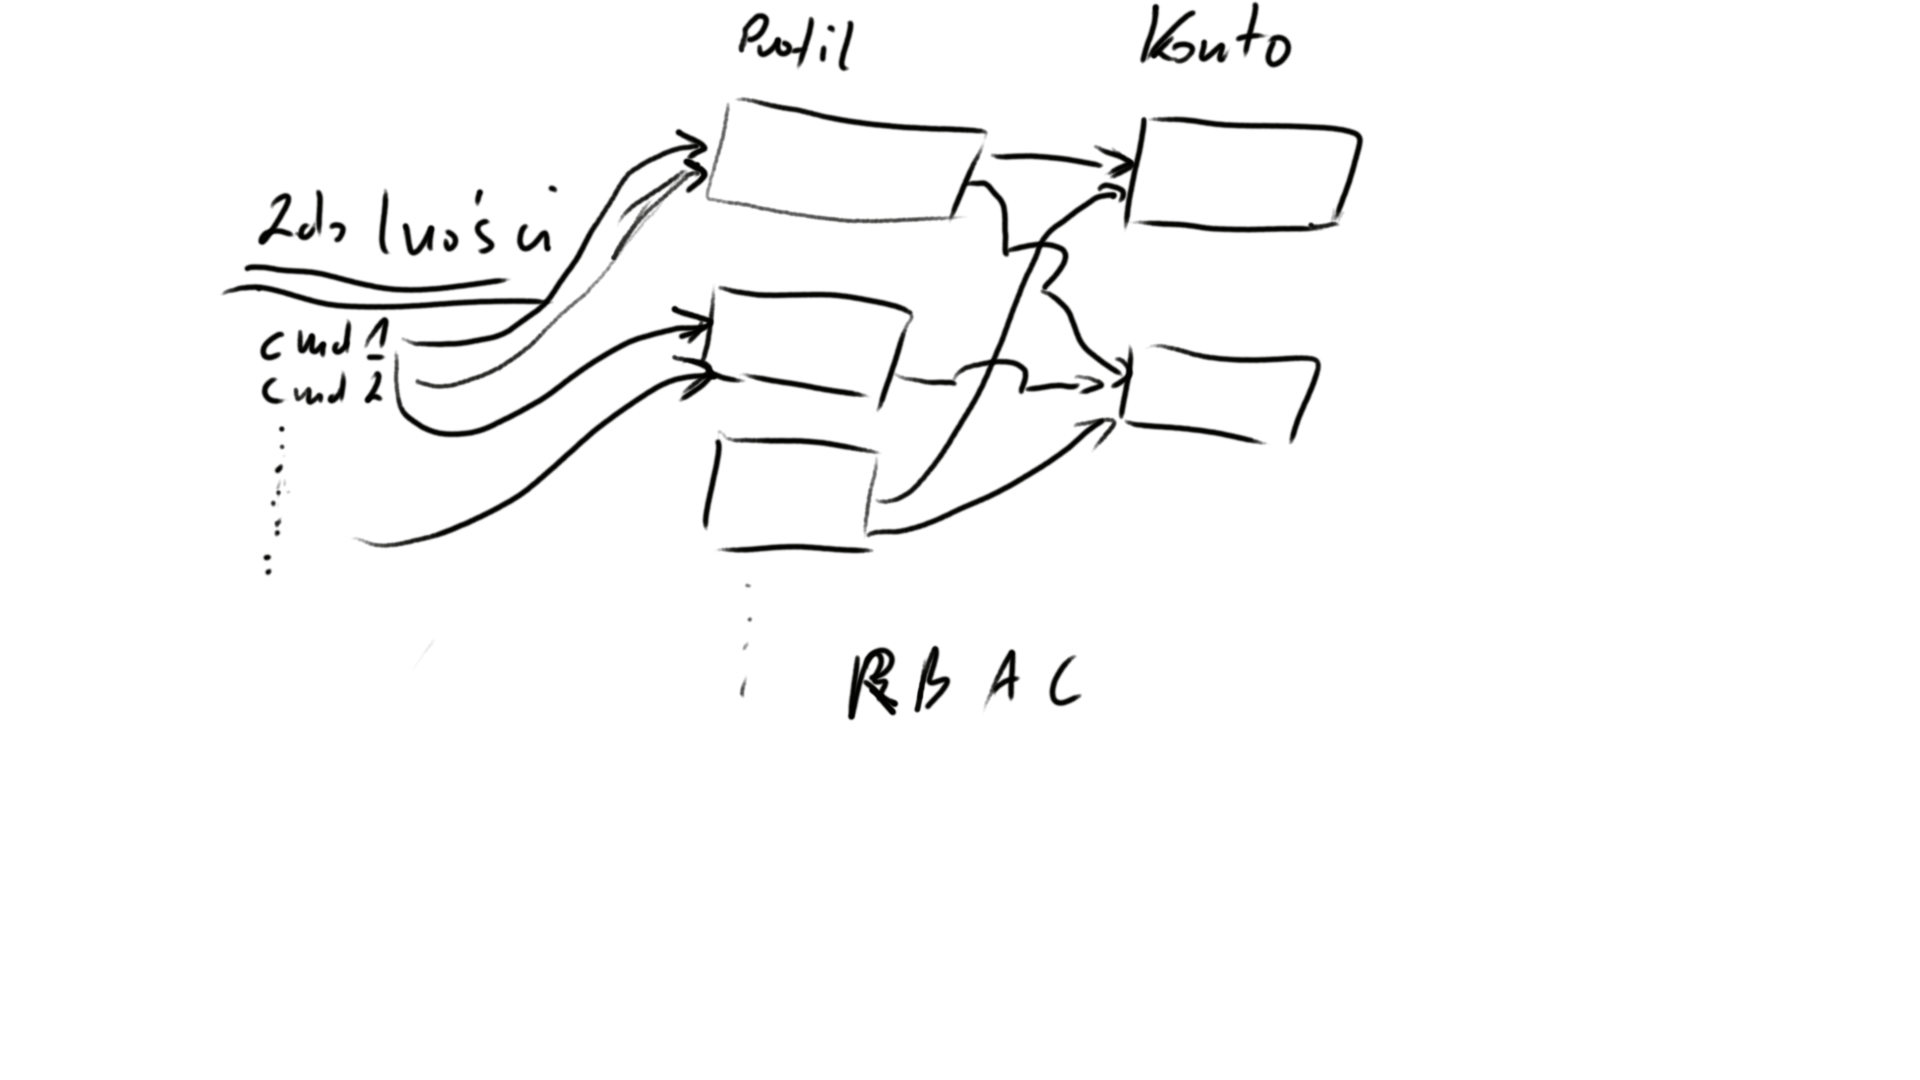 Profil
Konto
Zdolności
cmd 1
cmd 2
RBAC